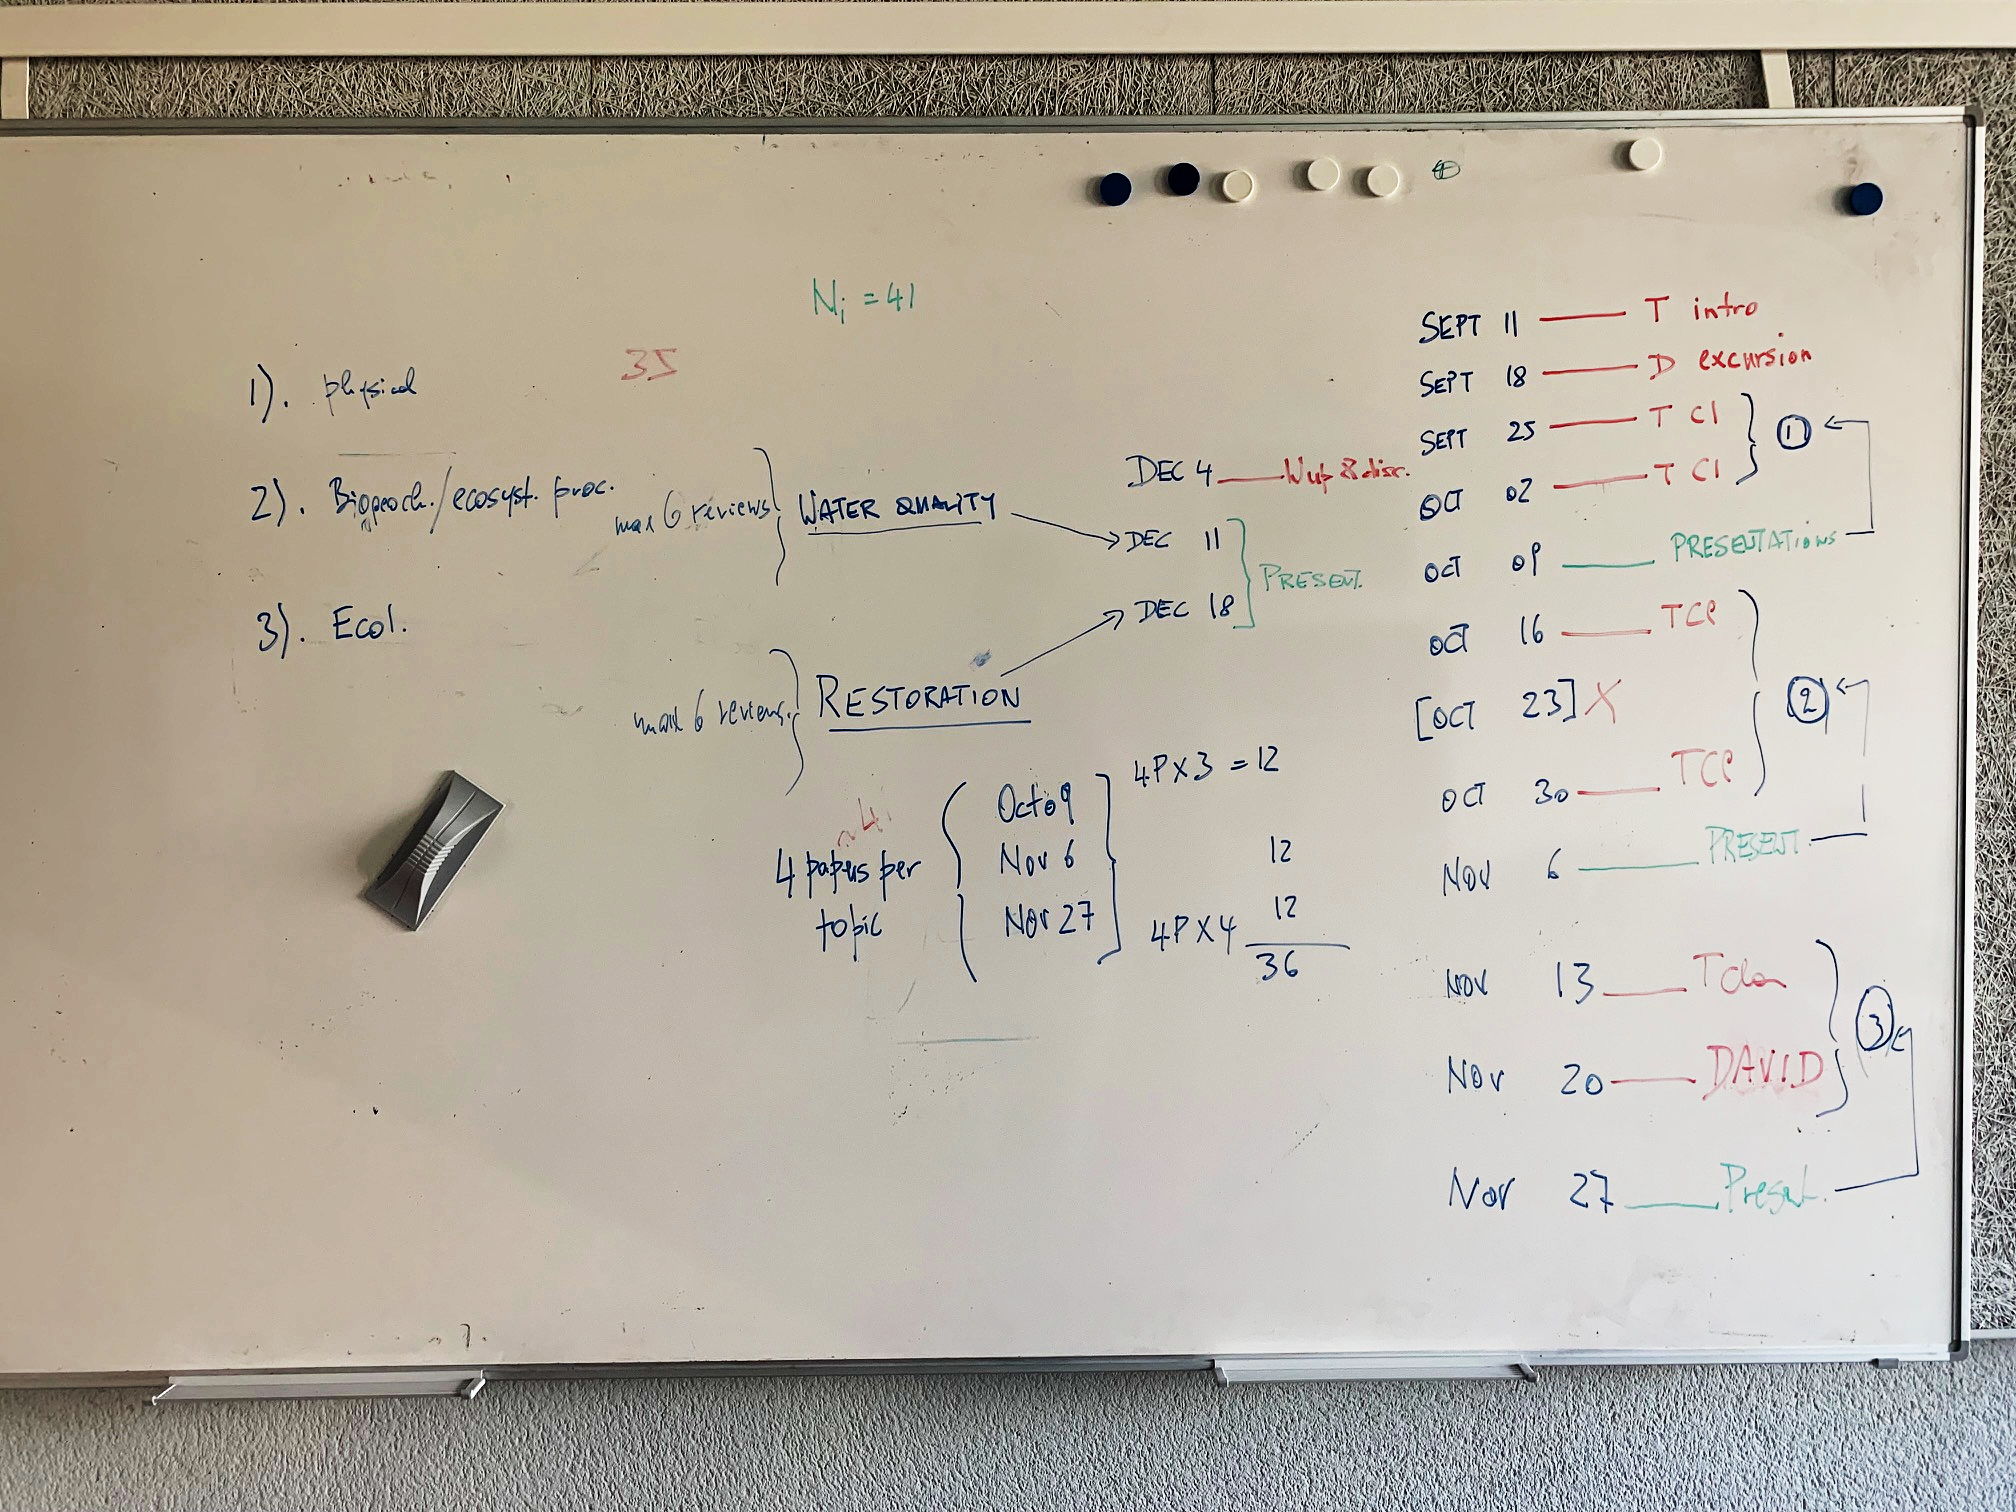 Ni = 41
35
1). physical
2). Biogeoch./ecosyst. proc.
3). Ecol.
max 6 reviews
WATER QUALITY
max 6 reviews
RESTORATION
DEC 4 disc.
DEC 11
DEC 18
PRESENT.
4 papers per
topic
Oct 09
Nov 6
Nov 27
4P X 3 = 12
12
4P X 4 12
36
SEPT 11 T intro
SEPT 18 D excursion
SEPT 25 T Cl
OCT 02 T Cl
1
OCT 09 PRESENTATIONS
OCT 16 TCP
[OCT 23] X
OCT 30 TCP
2
NOV 6 PRESENT.
NOV 13
NOV 20 DAVID
3
NOV 27 Present.